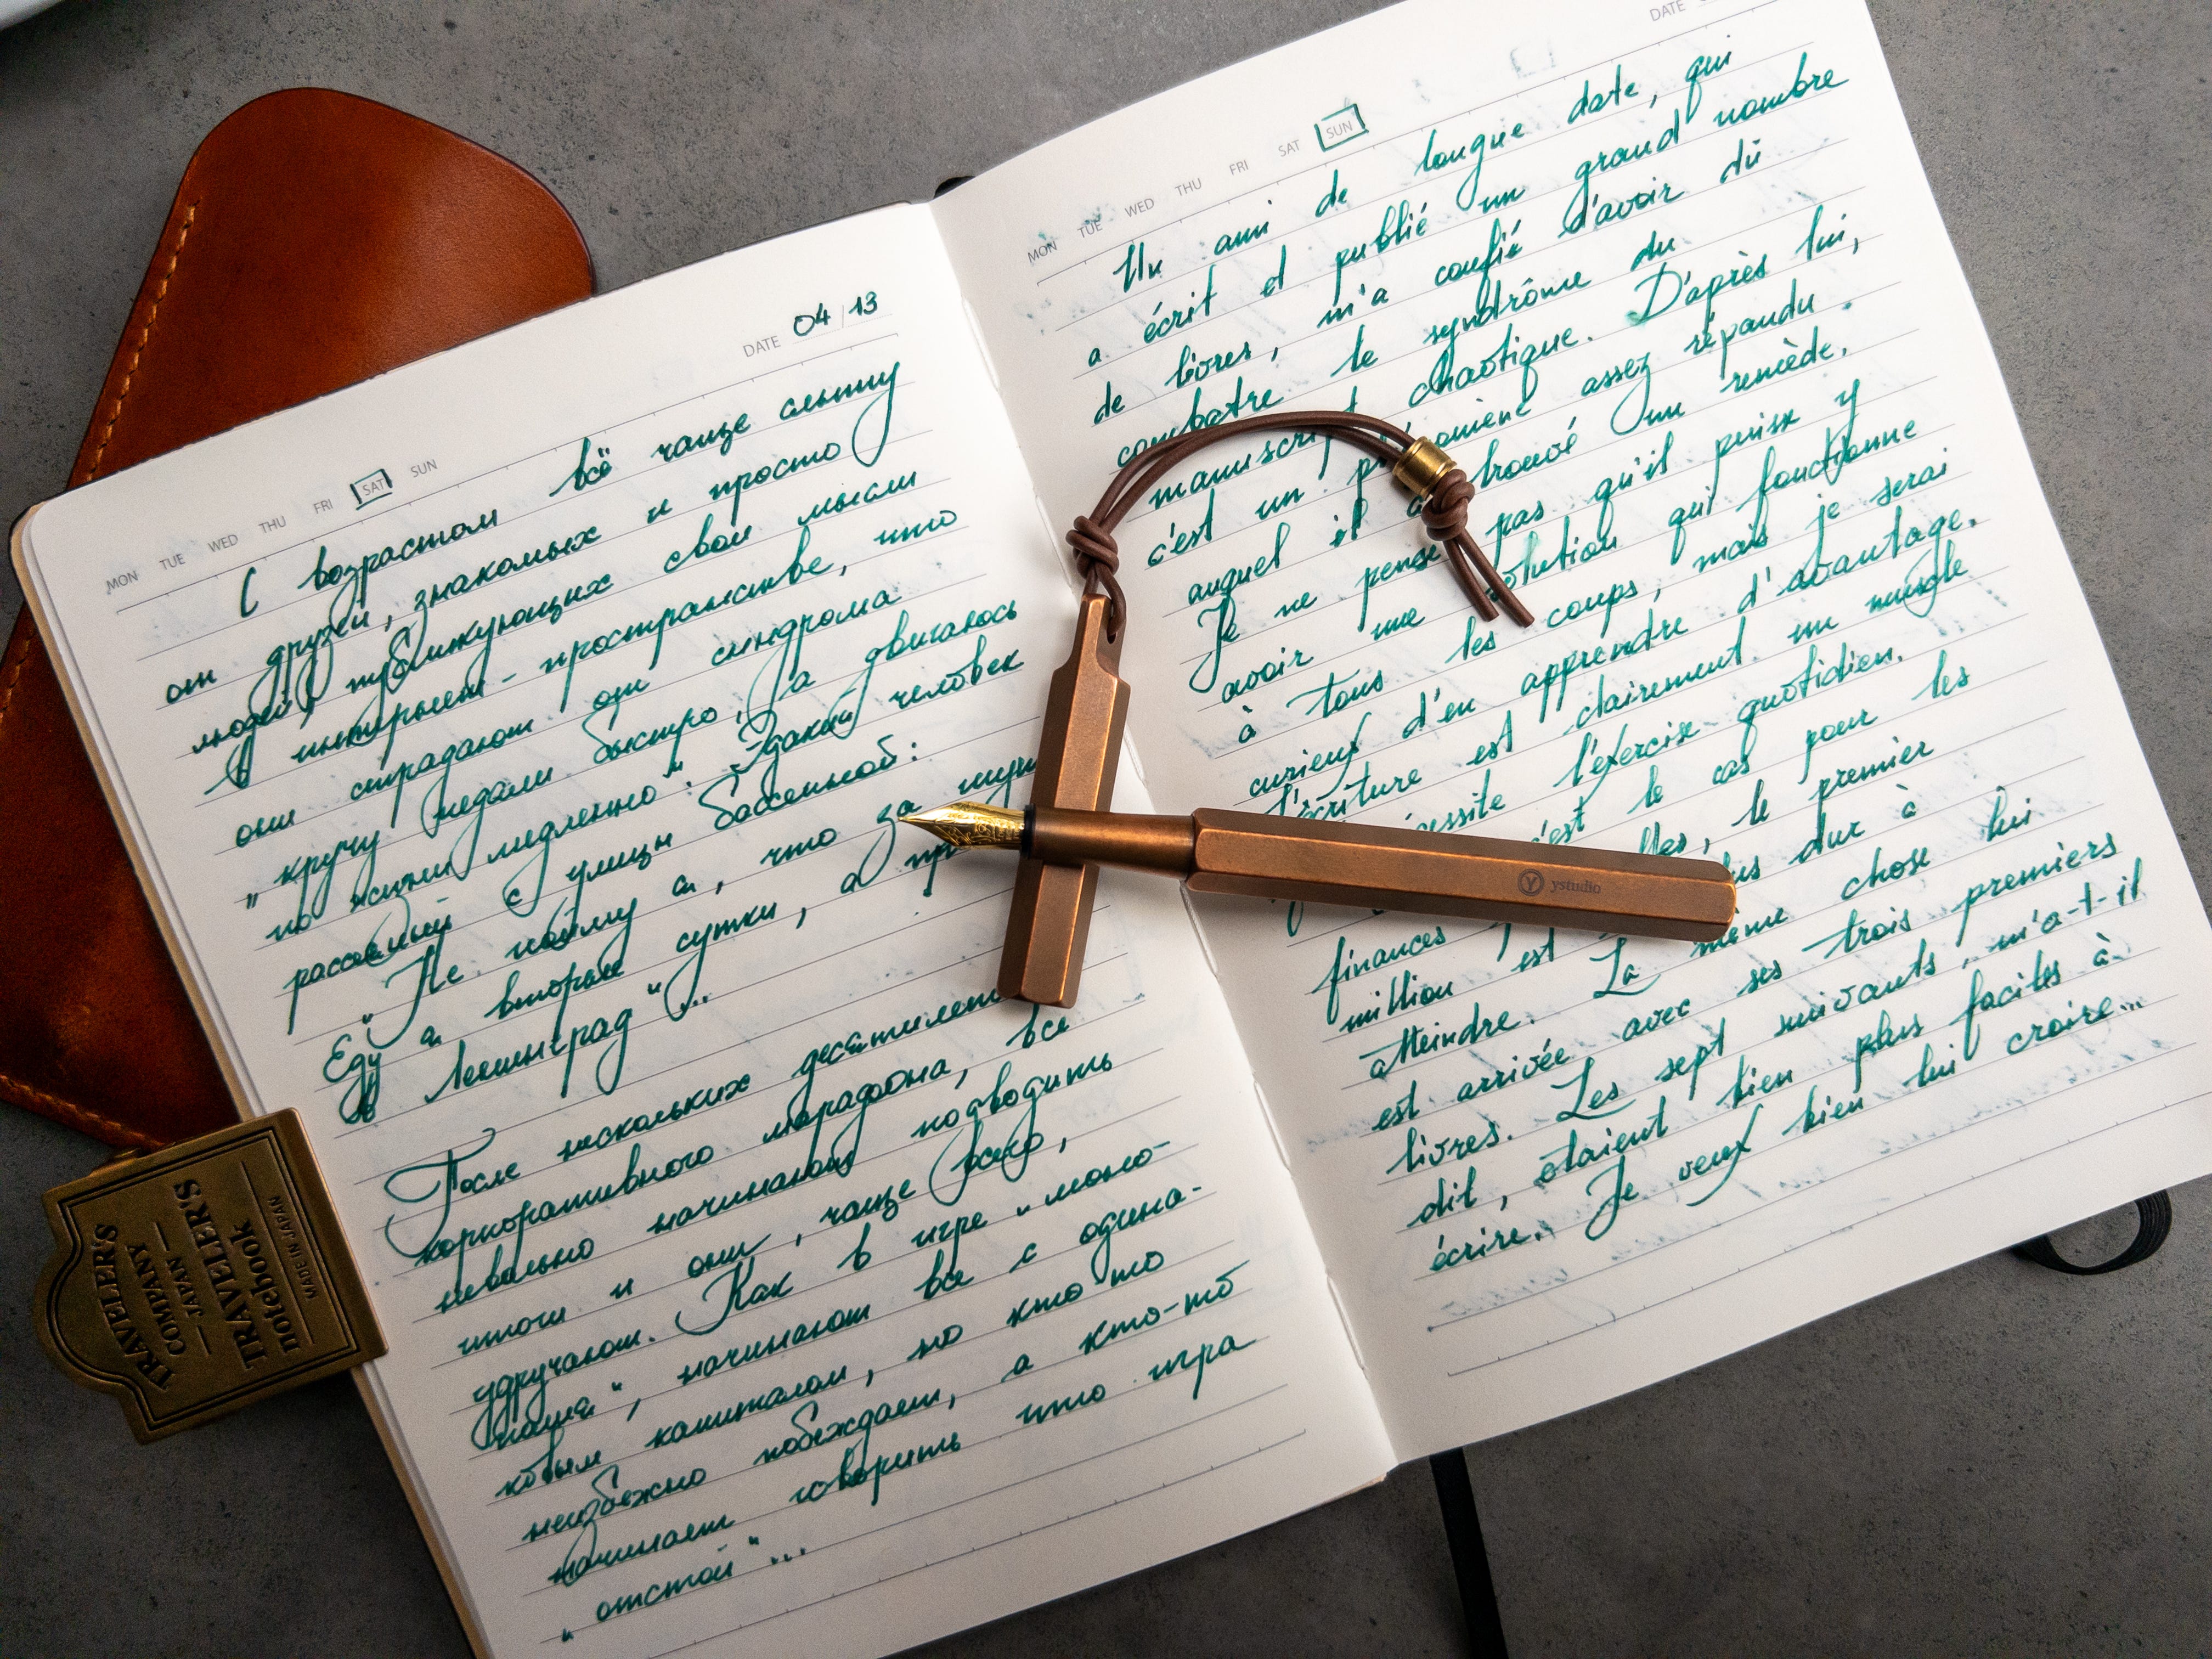 DATE 04/13
MON TUE WED THU FRI SAT SUN
С возрастом всё чаще слышу
от друзей, знакомых и просто
людей, публикующих свои мысли
в интернет-пространстве, что
они страдают от синдрома
„кручу педали быстро, а двигаюсь
по жизни медленно". Эдакий человек
рассеянный с улицы бассейной:
„Не пойму я, что за
Еду я вторые сутки, а
в Ленинград"...
После нескольких
корпоративного марафона, все
невольно начинают подводить
итоги и они, чаще всего,
удручают. Как в игре „моно-
полия", начинают все с одина-
ковым капиталом, но кто-то
неизбежно побеждает, а кто-то
начинает говорить что игра
„отстой"...
DATE
MON TUE WED THU FRI SAT SUN
Un ami de longue date, qui
a écrit et publié un grand nombre
de livres, m'a confié d'avoir dû
combatre le syndrôme du
manuscrit chaotique. D'après lui,
c'est un assez répandu
auquel il a trouvé un remède.
Je ne pense pas qu'il puisse y
avoir une solution qui fonctionne
à tous les coups, mais je serai
curieux d'en apprendre d'avantage.
L'écriture est clairement un muscle
l'exercise quotidien.
c'est le cas pour les
finances le premier
million est plus dur à
atteindre. La même chose lui
est arrivée avec ses trois premiers
livres. Les sept suivants, m'a-t-il
dit, étaient bien plus faciles à
écrire. Je veux bien lui croire...
ystudio
TRAVELER'S
COMPANY
— JAPAN —
TRAVELER'S
notebook
MADE IN JAPAN